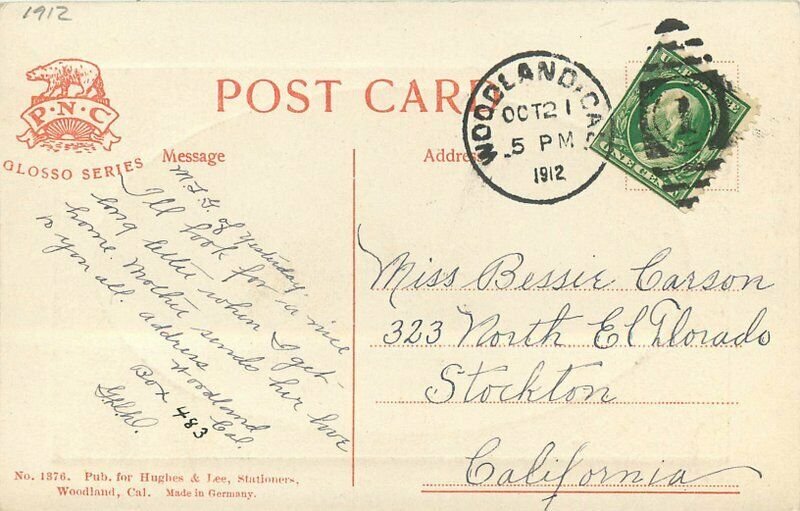 1912
POST CARD
P·N·C
GLOSSO SERIES
WOODLAND, CAL.
OCT 21
5 PM
1912
1
ONE CENT
Message
of Yesterday.
I'll look for a nice
long letter when I get
home. Mother sends her love
to you all. address
Woodland
Box 483 Cal.
Address
Miss Bessie Carson
323 North El Dorado
Stockton
California
No. 1376. Pub. for Hughes & Lee, Stationers,
Woodland, Cal. Made in Germany.